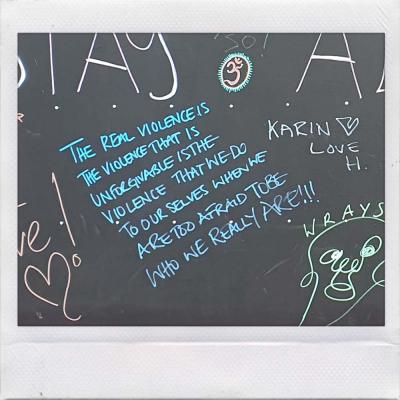 STAY A
THE REAL VIOLENCE IS
THE VIOLENCE THAT IS
UNFORGIVABLE IS THE
VIOLENCE THAT WE DO
TO OUR SELVES WHEN WE
ARE TOO AFRAID TO BE
WHO WE REALLY ARE!!!
ॐ
KARIN
LOVE
H.
WRAYS